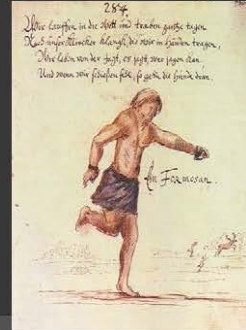 284
Wir lauffen in die Wett und traben gantze tagen
Nach unser Klencker Klang, die wir in händen tragen,
Wir leben von der Jagt, es jagt, wer jagen kan.
Und wenn wir schießen fehl, so gehn die Hunde dran.
Ein Formosan.